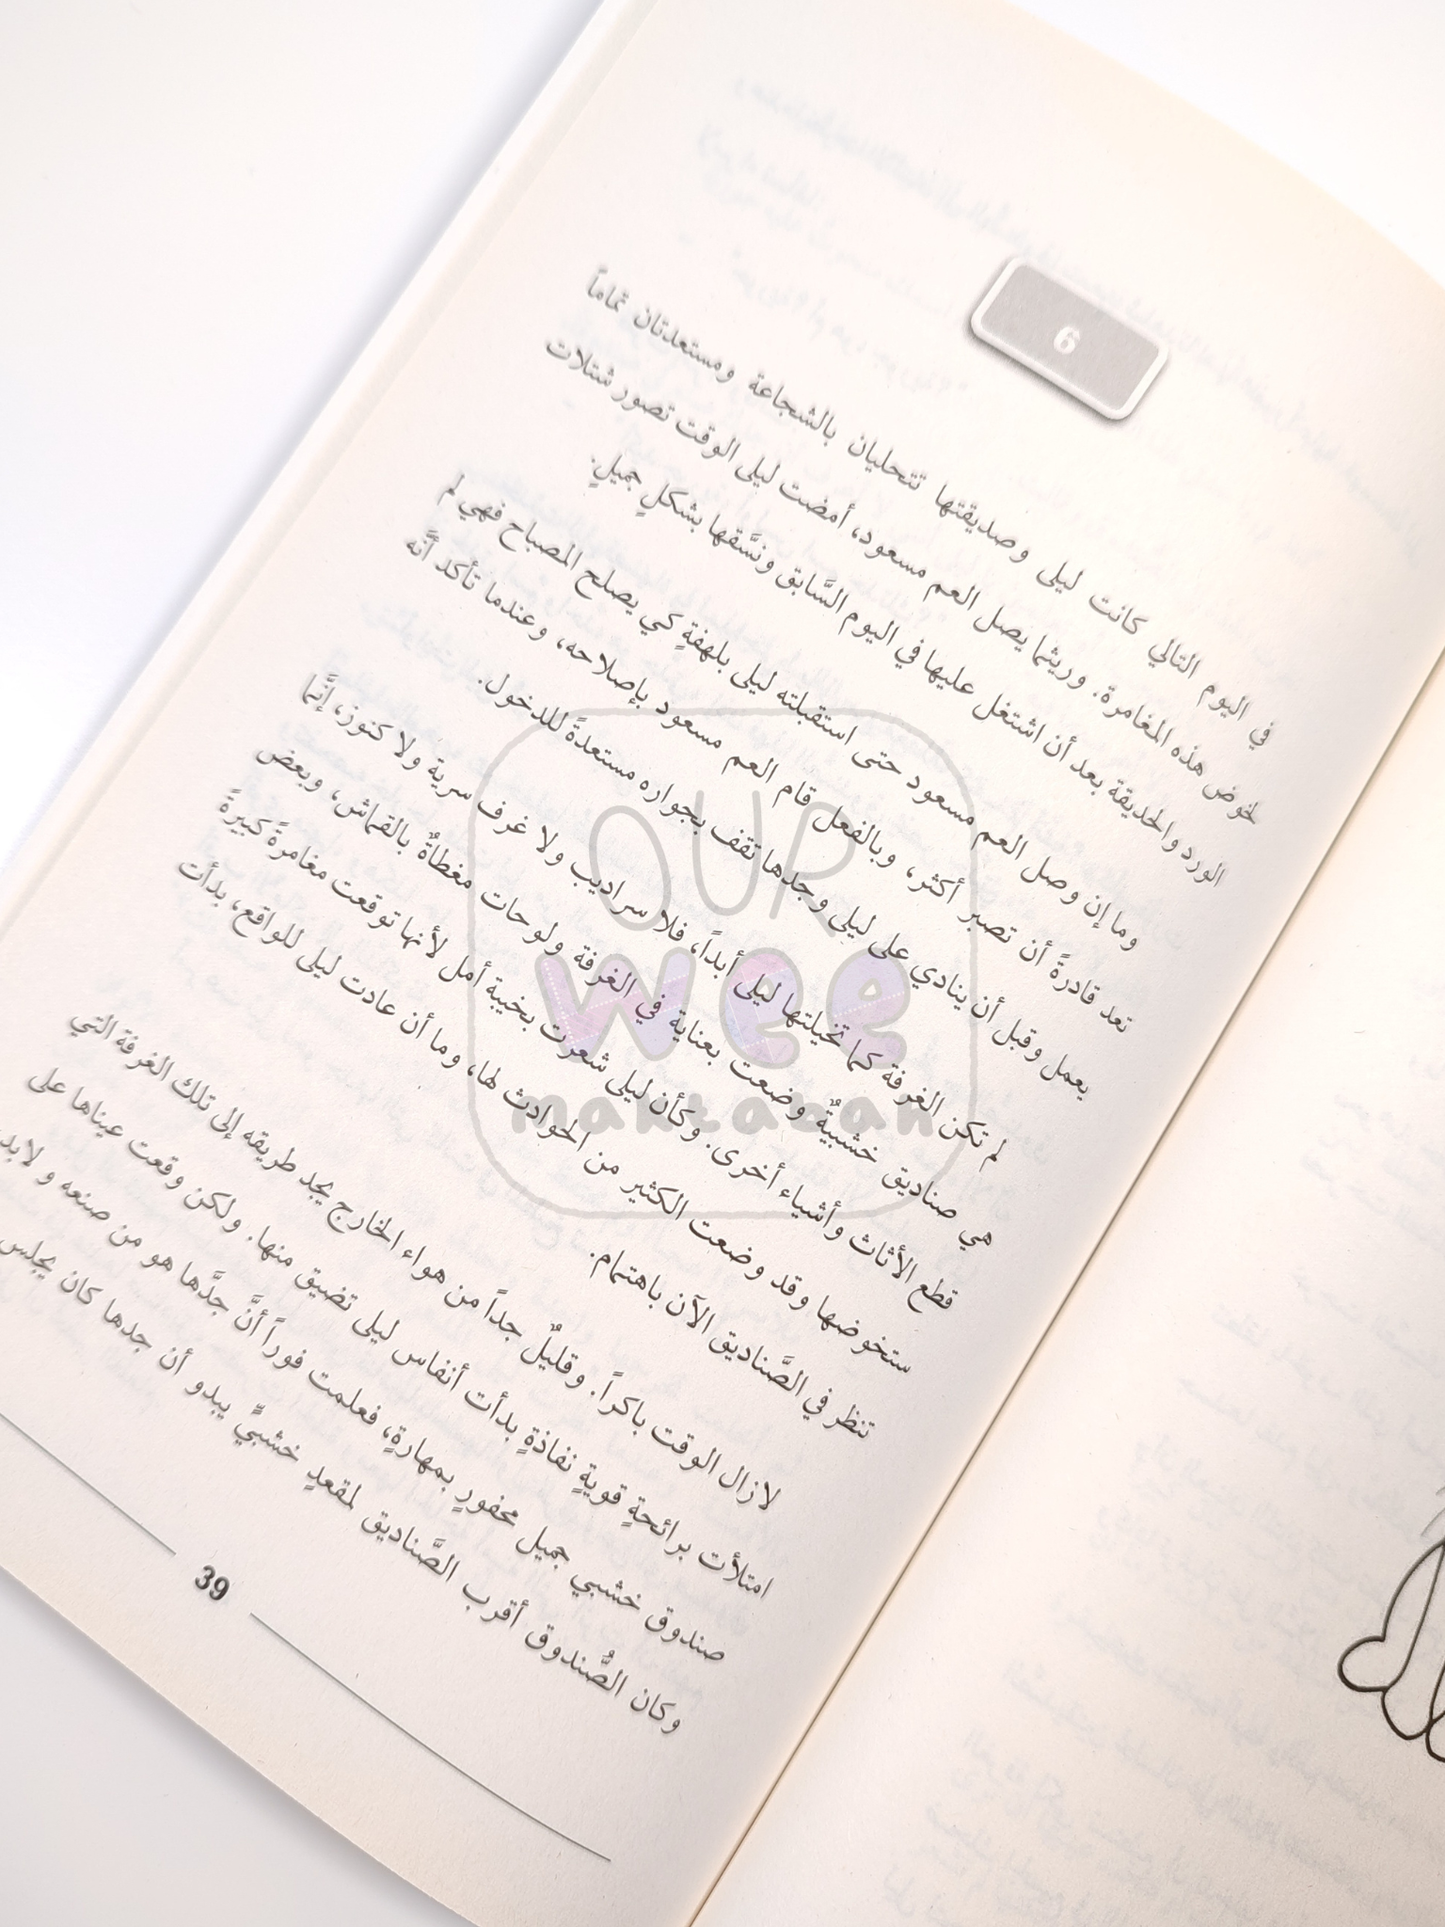 6
في اليوم التالي كانت ليلى وصديقتها تتحليان بالشجاعة ومستعدتان تماماً
لخوض هذه المغامرة. وريثما يصل العم مسعود، أمضت ليلى الوقت تصور شتلات
الورد والحديقة بعد أن اشتغل عليها في اليوم السَّابق ونسَّقها بشكلٍ جميلٍ.
وما إن وصل العم مسعود حتى استقبلته ليلى بلهفةٍ كي يصلح المصباح فهي لم
تعد قادرةً أن تصبر أكثر، وبالفعل قام العم مسعود بإصلاحه، وعندما تأكد أنَّه
يعمل وقبل أن ينادي على ليلى وجدها تقف بجواره مستعدةً للدخول.
لم تكن الغرفة كما تخيلتها ليلى أبداً، فلا سراديب ولا غرف سرية ولا كنوز، إنَّما
هي صناديق خشبيةٌ وضعت بعناية في الغرفة ولوحات مغطاةٌ بالقماش، وبعض
قطع الأثاث وأشياء أخرى. وكأن ليلى شعرت بخيبة أمل لأنها توقعت مغامرةً كبيرةً
ستخوضها وقد وضعت الكثير من الحوادث لها، وما أن عادت ليلى للواقع، بدأت
تنظر في الصَّناديق الآن باهتمام.
لازال الوقت باكراً. وقليلٌ جداً من هواء الخارج يجد طريقه إلى تلك الغرفة التي
امتلأت برائحةٍ قويةٍ نفاذةٍ بدأت أنفاس ليلى تضيق منها. ولكن وقعت عيناها على
صندوق خشبي جميل محفورٍ بمهارةٍ، فعلمت فوراً أنَّ جدَّها هو من صنعه ولابد
وكان الصُّندوق أقرب الصَّناديق لمقعدٍ خشبيٍّ يبدو أن جدها كان يجلس
39
OUR
wee
maktabah